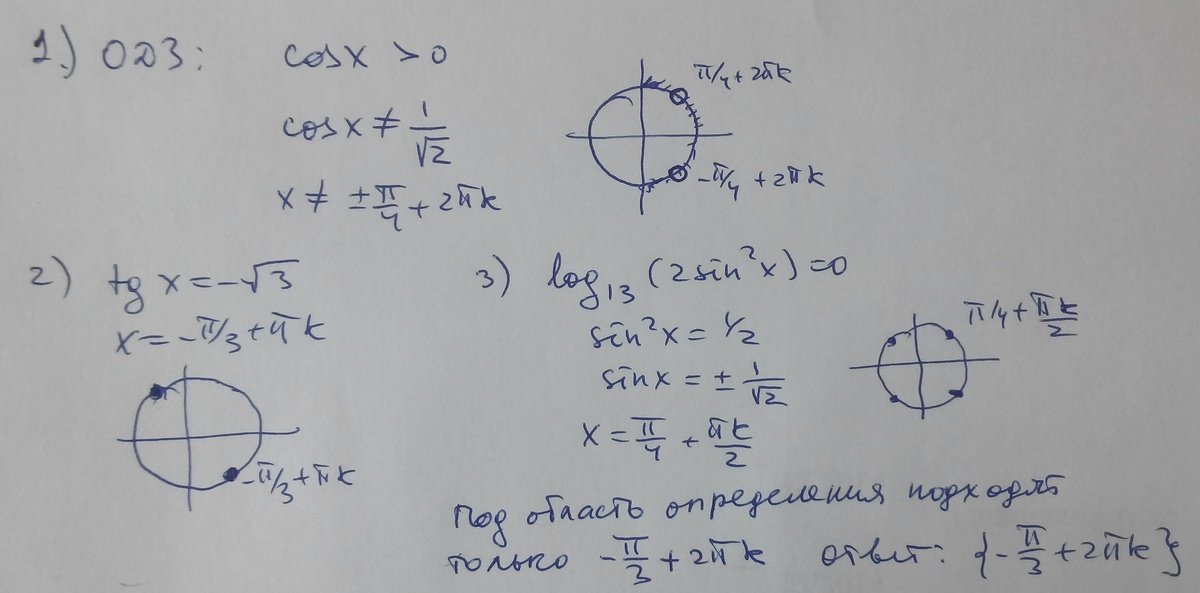 1.) ОДЗ: cosx > 0
cosx ≠ 1/√2
x ≠ ±π/4 + 2πk
π/4 + 2πk
-π/4 + 2πk
2) tg x = -√3
x = -π/3 + πk
-π/3 + πk
3) log₁₃ (2sin²x) = 0
sin²x = 1/2
sinx = ± 1/√2
x = π/4 + πk/2
π/4 + πk/2
Под область определения подходят
только -π/3 + 2πk ответ: {-π/3 + 2πk}